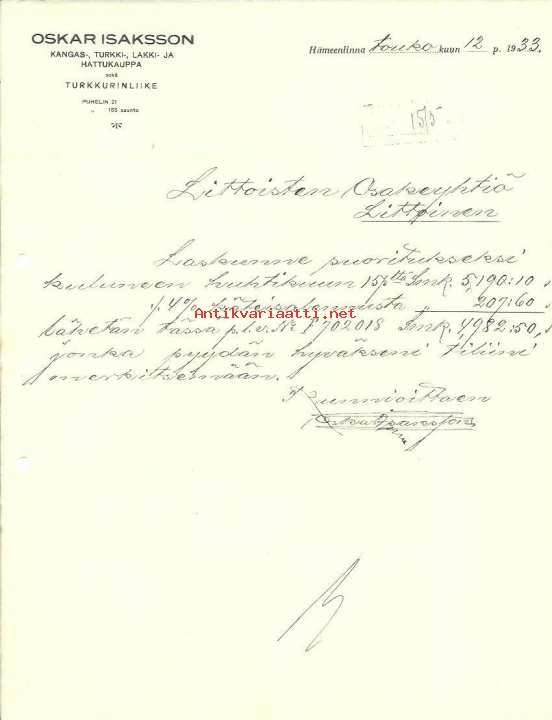 OSKAR ISAKSSON
KANGAS-, TURKKI-, LAKKI- JA
HATTUKAUPPA
sekä
TURKKURINLIIKE
PUHELIN 21
„ 155 asunto
Hämeenlinna touko kuun 12 p. 1933.
15/5
Littoisten Osakeyhtiö
Littoinen
Laskunne suoritukseksi
kuluneen huhtikuun 15 p:ltä Smk. 5,190:10
./. 4% käteisalennusta „ 207:60
lähetän tässä p.l.v. No 702018 Smk. 4982:50,
jonka pyydän hyväkseni tiliini
merkitsemään.
Kunnioittaen
Oskar Isaksson
Antikvariaatti.net